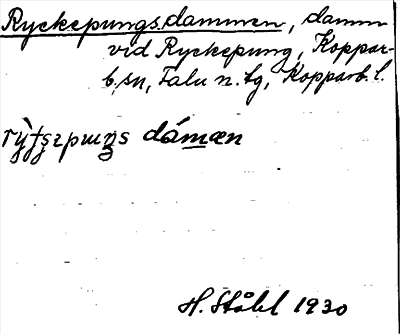 Ryckepungs.dammen, damm
vid Ryckepung, Koppar-
b. sn, Falu n. tg, Kopparb. l.
dámæn
H. Ståhl 1930